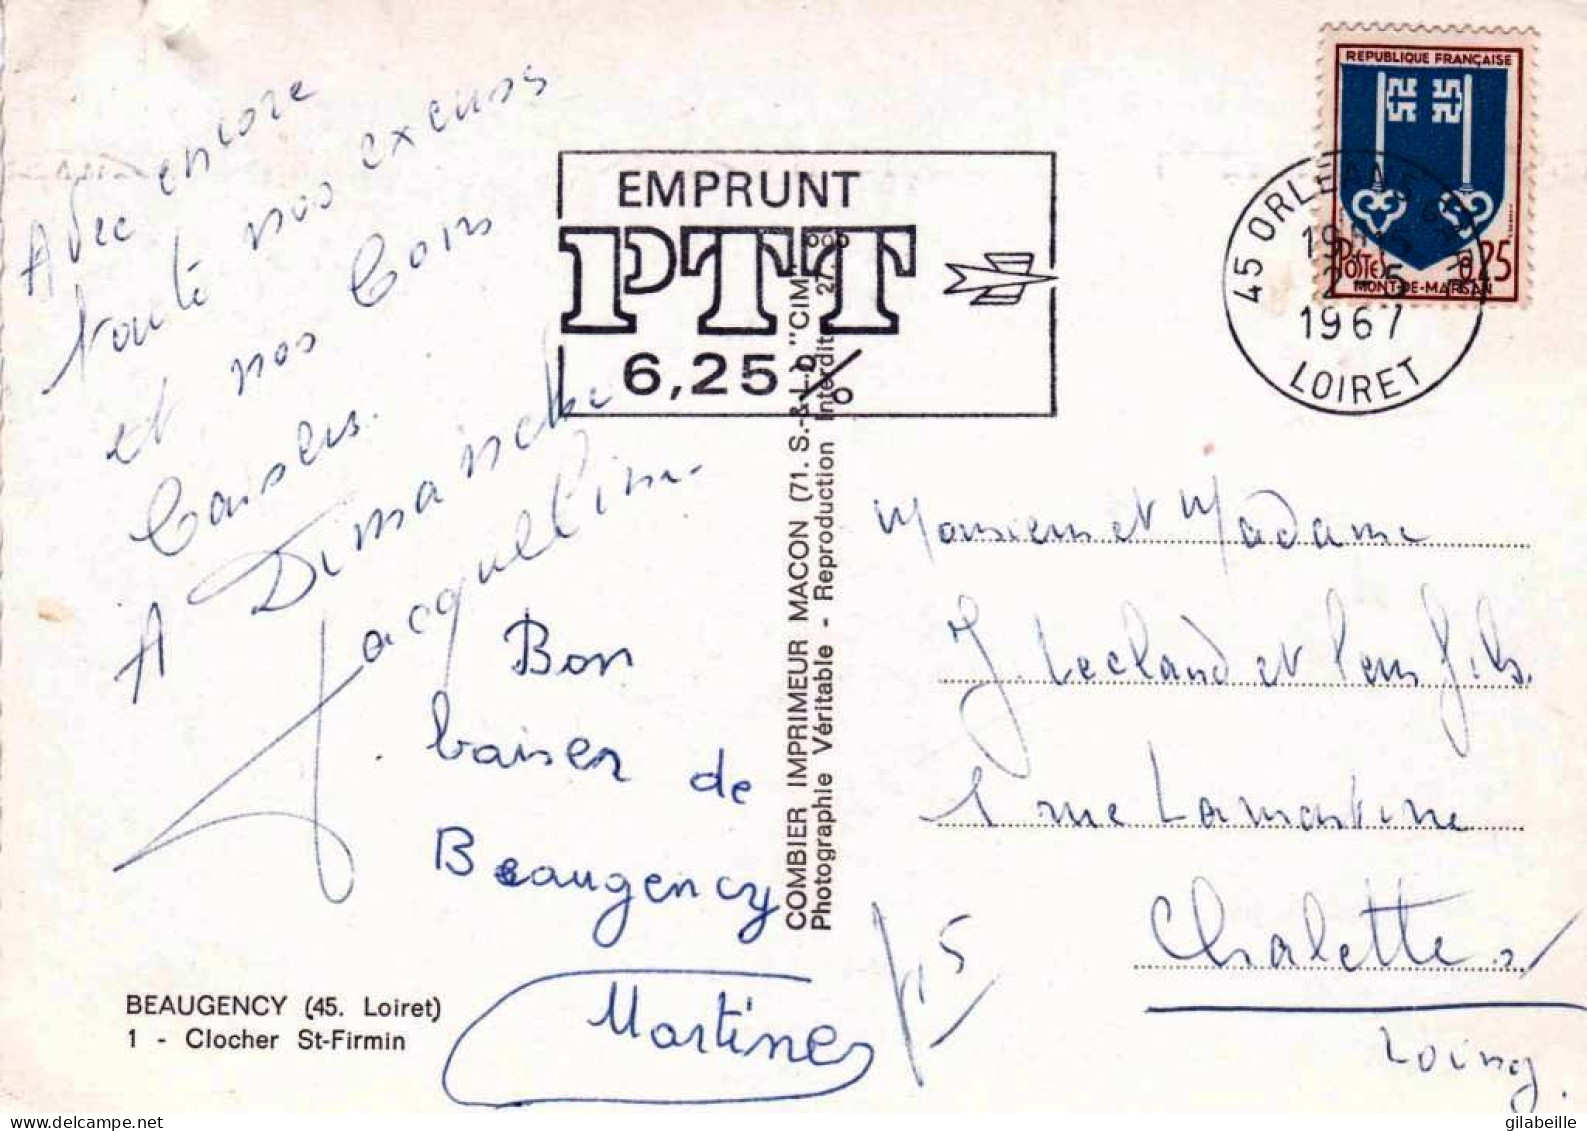 Avec encore
toute nos excuses
et nos bons
baisers.
A Dimanche
Jacqueline.
Bon
baiser de
Beaugency
Martine
BEAUGENCY (45. Loiret)
1 - Clocher St-Firmin
COMBIER IMPRIMEUR MACON (71. S.-&-L.) "CIM"
Photographie Véritable - Reproduction Interdite
EMPRUNT
PTT
6,25%
REPUBLIQUE FRANÇAISE
POSTES 0,25
MONT-DE-MARSAN
45 ORLEANS
1967
LOIRET
Monsieur et Madame
J. Lecland et leur fils.
1 rue Lamartine
Chalette s/
Loing.
45
gilabeille